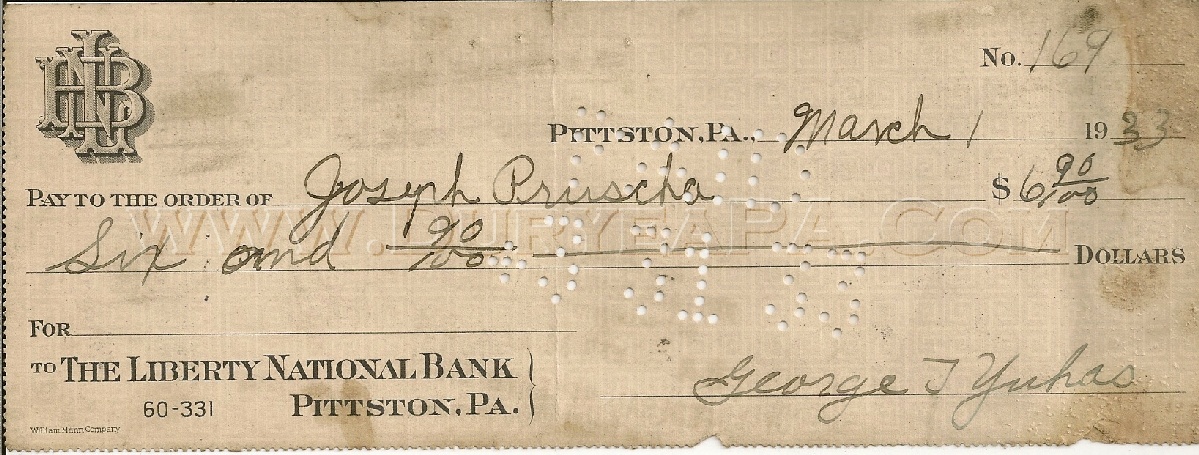 LNB
No. 169
PITTSTON, PA., March 1 1933
PAY TO THE ORDER OF Joseph Pruscha $6 90/00
WWW.DURYEAPA.COM
Six and 90/00 DOLLARS
FOR
TO THE LIBERTY NATIONAL BANK
60-331 PITTSTON, PA.
George T Yuhas
William Mann Company